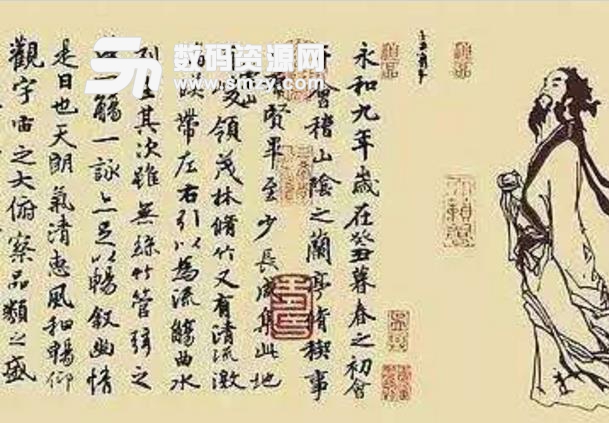 永和九年歲在癸丑暮春之初會
會稽山陰之蘭亭脩稧事
賢畢至少長咸集此地
領茂林脩竹又有清流激
暎帶左右引以為流觴曲水
列坐其次雖無絲竹管弦之
一觴一詠亦足以暢敘幽情
是日也天朗氣清惠風和暢仰
觀宇宙之大俯察品類之盛
数码资源网
www.smzy.com